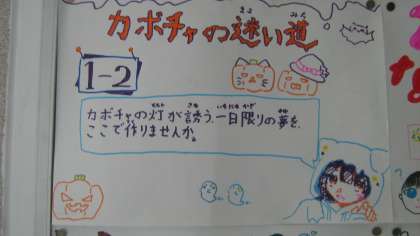 カボチャの迷い道
1-2
カボチャの灯が誘う、一日限りの夢を、
ここで作りませんか。